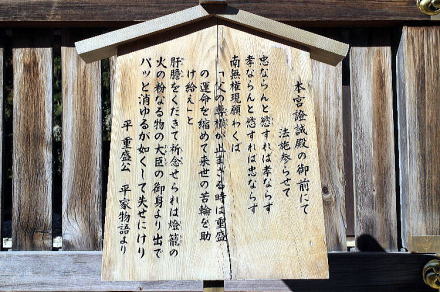 本宮證誠殿の御前にて
法施参らせて
忠ならんと慾すれば孝ならず
孝ならんと慾すれば忠ならず
南無権現願わくば
「父の専横が止まざる時は重盛
の運命を縮めて来世の苦輪を助
け給え」と
肝膽をくだきて祈念せられは燈籠の
火の粉なる物の大臣の御身より出で
バッと消ゆるが如くして失せにけり
平重盛公 平家物語より